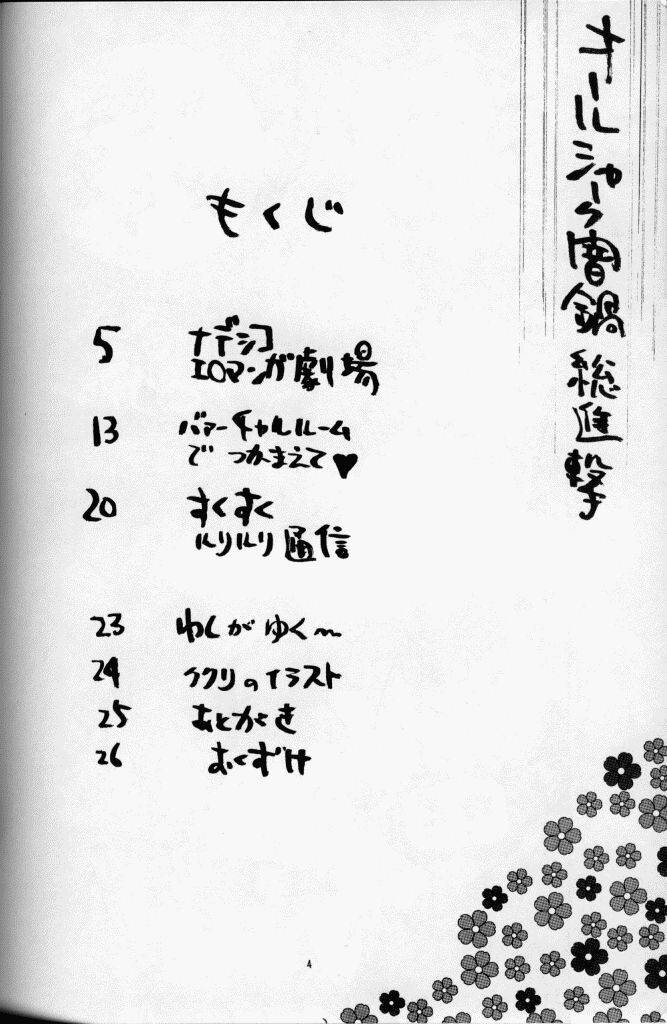 オールシャーク闇鍋総進撃
もくじ
5 ナデシコ
エロマンガ劇場
13 バァーチャルルーム
で つかまえて♥
20 すくすく
ルリルリ通信
23 わしがゆく〜
24 ククリのイラスト
25 あとがき
26 おくずけ
4